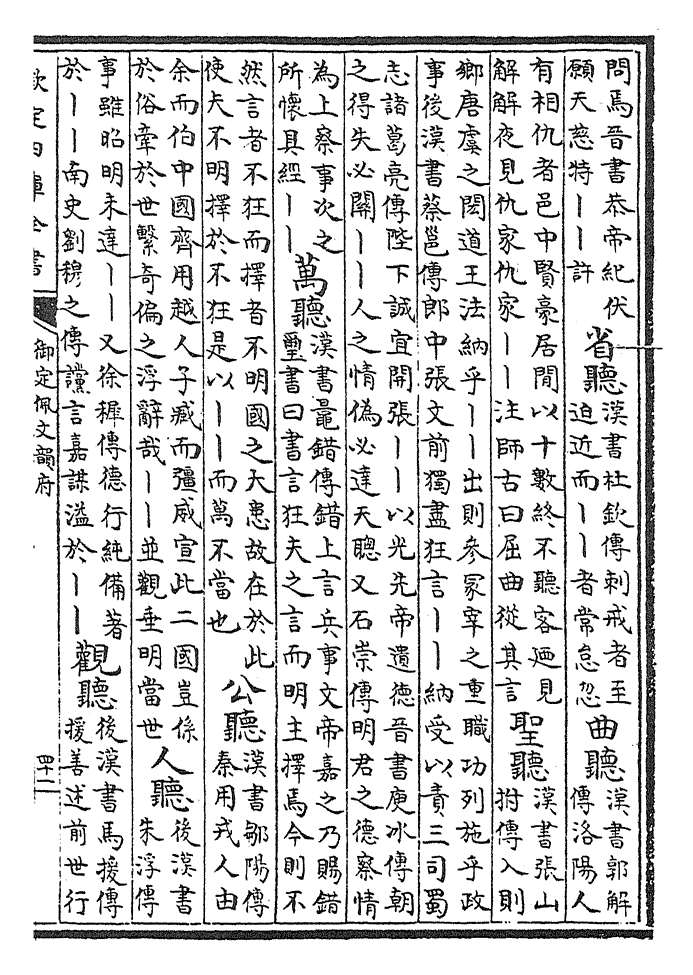 問焉晉書恭帝紀伏
願天慈特丨丨許
省聽
漢書杜欽傳刺戒者至
迫近而丨丨者常怠忽
曲聽
漢書郭解
傳洛陽人
有相仇者邑中賢豪居間以十數終不聽客廼見
解解夜見仇家仇家丨丨注師古曰屈曲從其言
聖聽
漢書張山
拊傳入則
鄉唐虞之閎道王法納乎丨丨出則參冢宰之重職功列施乎政
事後漢書蔡邕傳郎中張文前獨盡狂言丨丨納受以責三司蜀
志諸葛亮傳陛下誠宜開張丨丨以光先帝遺德晉書庾冰傳朝
之得失必關丨丨人之情偽必達天聰又石崇傳明君之德察情
為上察事次之
所懷具經丨丨
萬聽
漢書鼂錯傳錯上言兵事文帝嘉之乃賜錯
璽書曰書言狂夫之言而明主擇焉今則不
然言者不狂而擇者不明國之大患故在於此
使夫不明擇於不狂是以丨丨而萬不當也
公聽
漢書鄒陽傳
秦用戎人由
余而伯中國齊用越人子臧而彊威宣此二國豈係
於俗牽於世繫奇偏之浮辭哉丨丨並觀垂明當世
人聽
後漢書
朱浮傳
事雖昭明未達丨丨又徐穉傳德行純備著
於丨丨南史劉穆之傳讜言嘉謀溢於丨丨
觀聽
後漢書馬援傳
援善述前世行
欽定四庫全書
御定佩文韻府
四十二